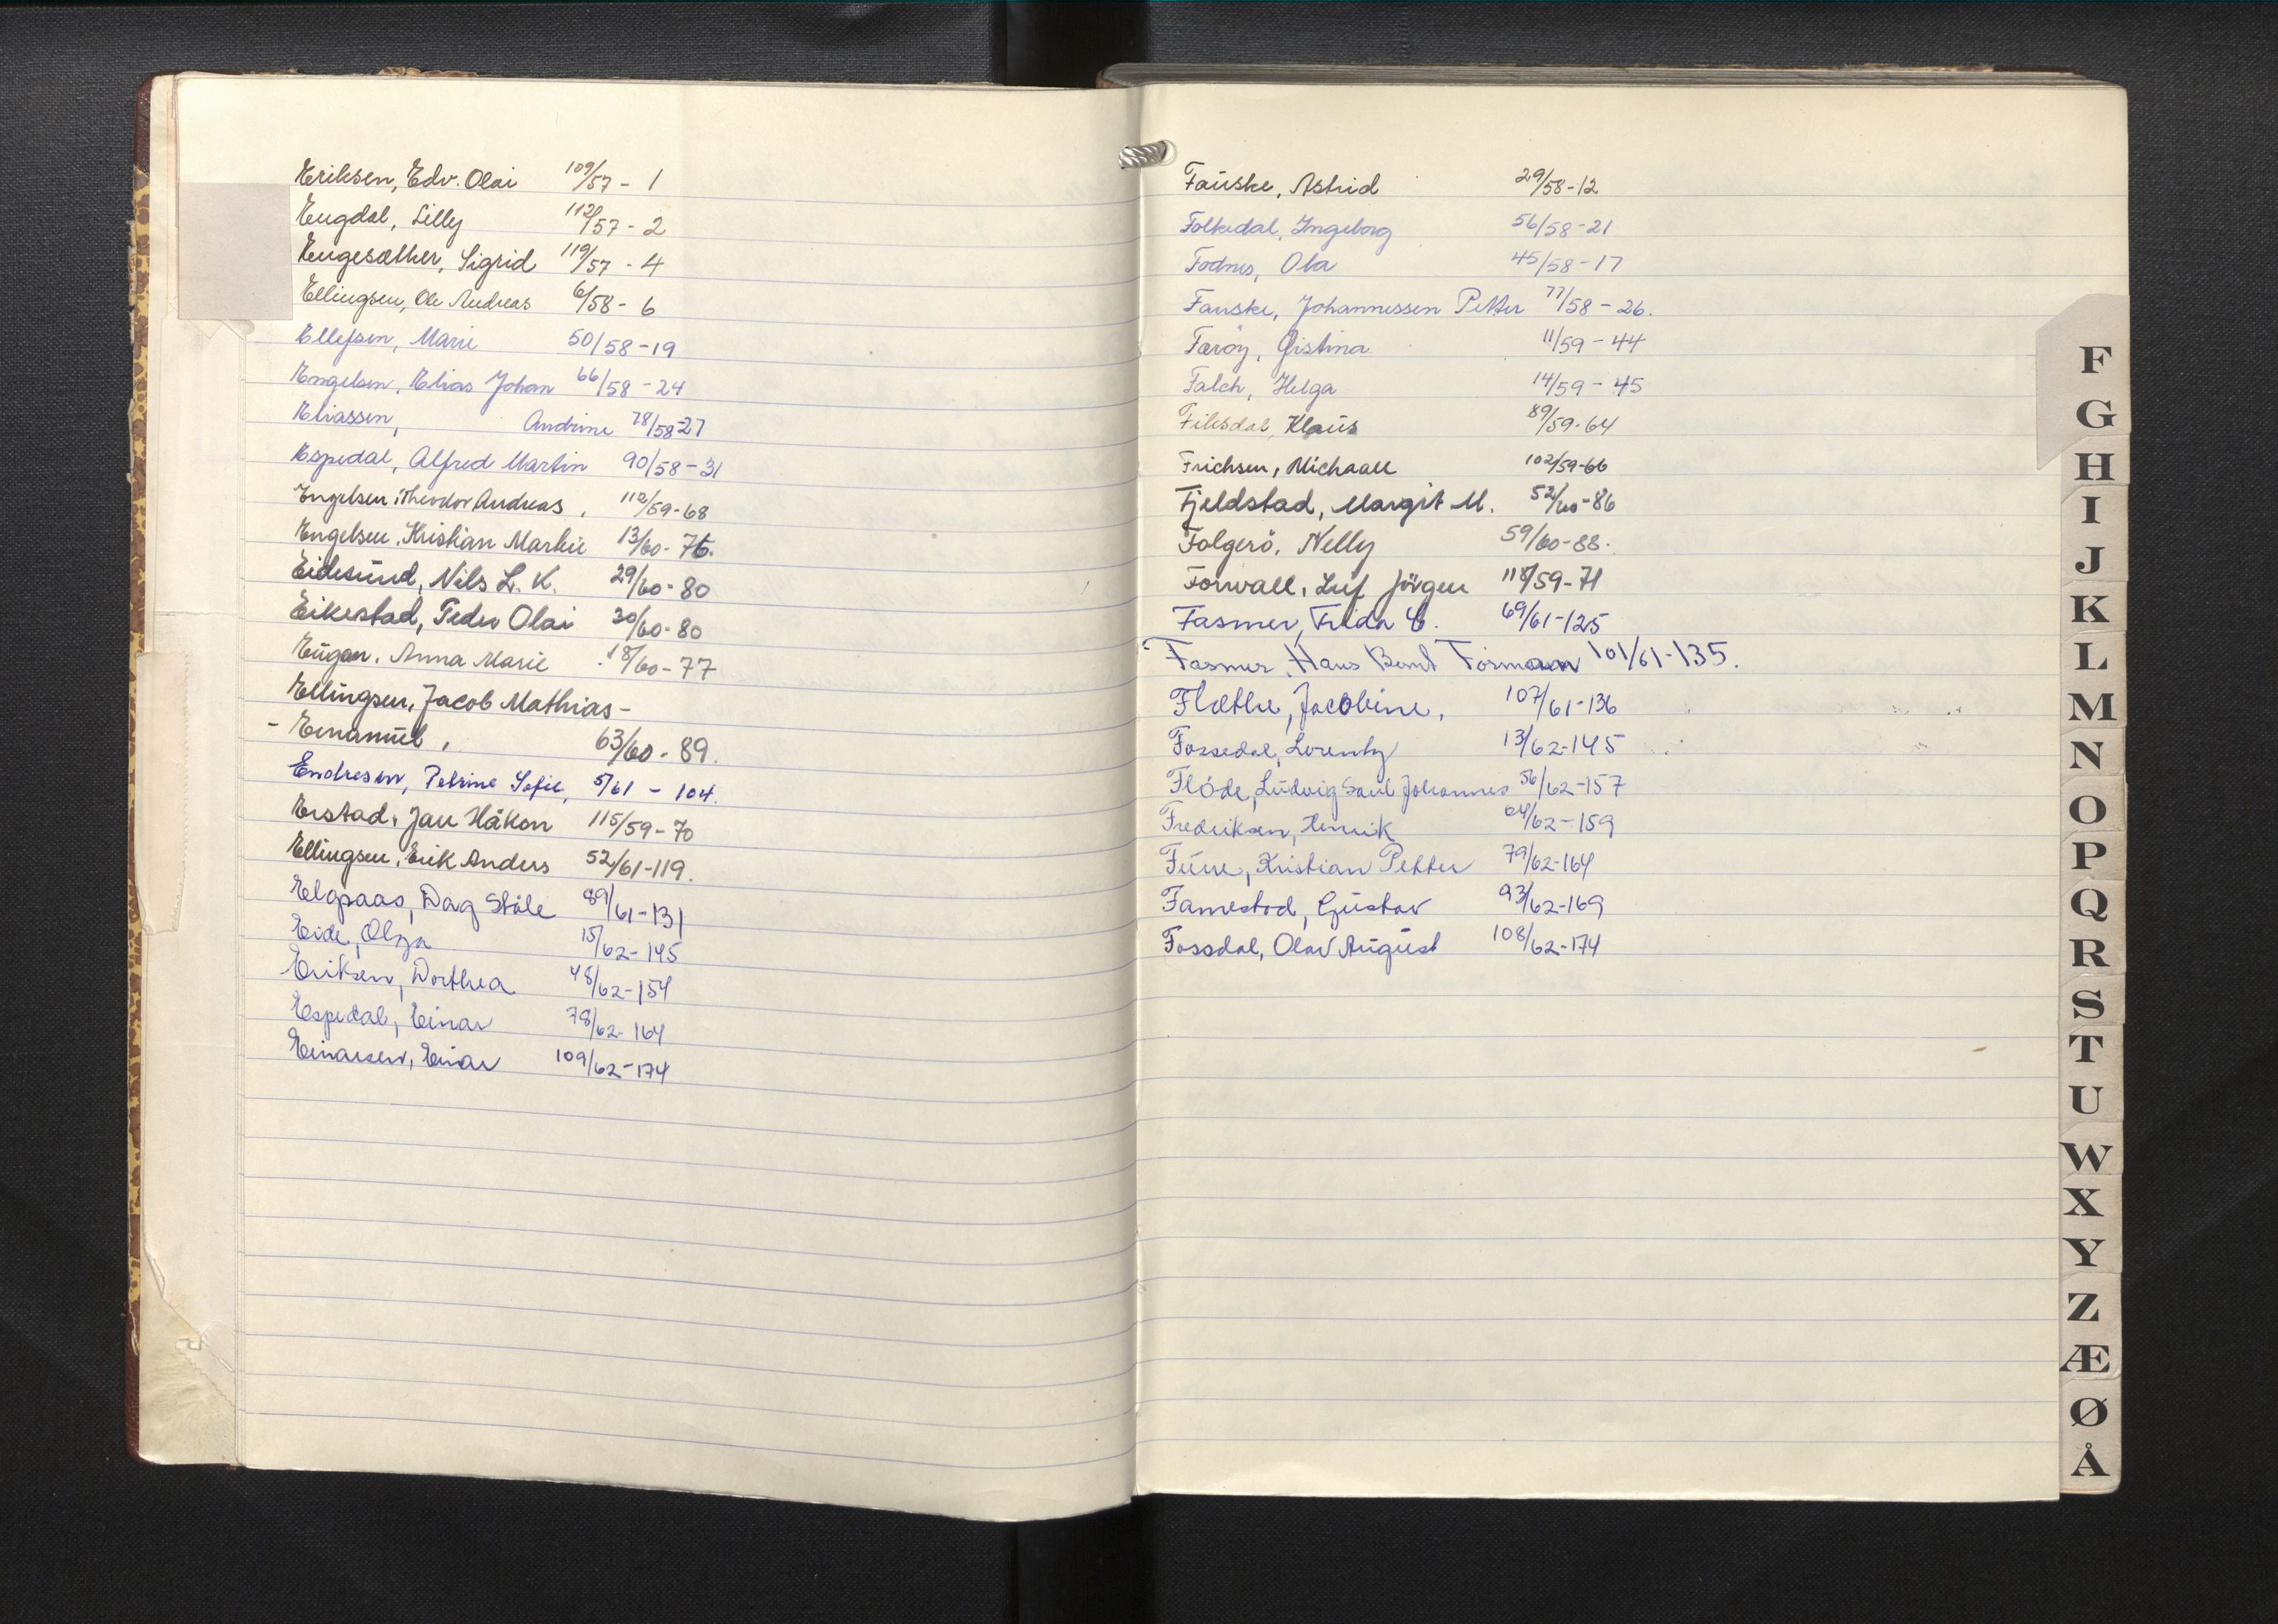 Eriksen, Edv. Olai 109/57 - 1
Engdal, Lilly 112/57 - 2
Engesæther, Sigrid 119/57 - 4
Ellingsen, Ole Andreas 6/58 - 6
Ellefsen, Marie 50/58 - 19
Engelsen, Elias Johan 66/58 - 24
Eliassen, Andrine 78/58 - 27
Espedal, Alfred Martin 90/58 - 31
Engelsen, Theodor Andreas, 112/59-68
Engelsen, Kristian Martin 13/60-76.
Eidesund, Nils L. K. 29/60-80
Eikestad, Peder Olai 30/60-80
Anna Marie 18/60-77
Ellingsen, Jacob Mathias -
- Emanuel, 63/60-89.
Endresen, Petrine Sofie, 5/61 - 104.
Erstad, Jan Håkon 115/59-70
Ellingsen, Erik Anders 52/61-119.
Elgsaas, Dag Ståle 89/61-131
Eide, Olga 15/62-145
Eriksen, Dorthea 48/62-154
Espedal, Einar 78/62-164
Einarsen, Einar 109/62-174
Fauske, Astrid 29/58-12
Folkedal, Ingeborg 56/58-21
Fodnes, Ola 45/58-17
Fauske, Johannessen Petter 77/58-26.
Færøy, Gistina 11/59-44
Falch, Helga 14/59-45
Fiksdal, Klaus 89/59-64
Frichsen, Michaael 102/59-66
Fjeldstad, Margit M. 52/60-86
Folgerö, Nelly 59/60-88.
Forwall, Leif Jörgen 118/59-71
Fasmer, Frida C. 69/61-125
Fasmer, Hans Bernt Formann 101/61-135.
Flæthe, Jacobine, 107/61-136
Fossedal, Lorentz 13/62-145
Flöde, Ludvig Saul Johannes 56/62-157
Fredriksen, Henrik 64/62-159
Furre, Kristian Petter 79/62-164
Famestad, Gustav 93/62-169
Fossdal, Olav August 108/62-174
F
G
H
I
J
K
L
M
N
O
P
Q
R
S
T
U
W
X
Y
Z
Æ
Ø
Å